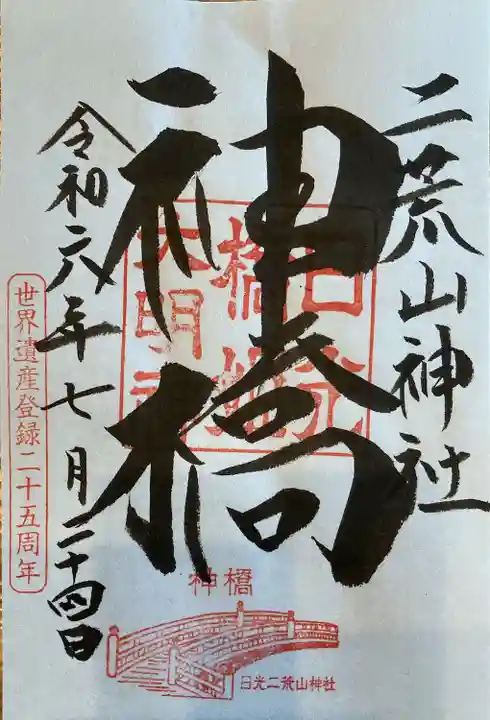 二荒山神社
神橋
日光
橋姫
大明神
令和六年七月二十四日
世界遺産登録二十五周年
神橋
日光二荒山神社